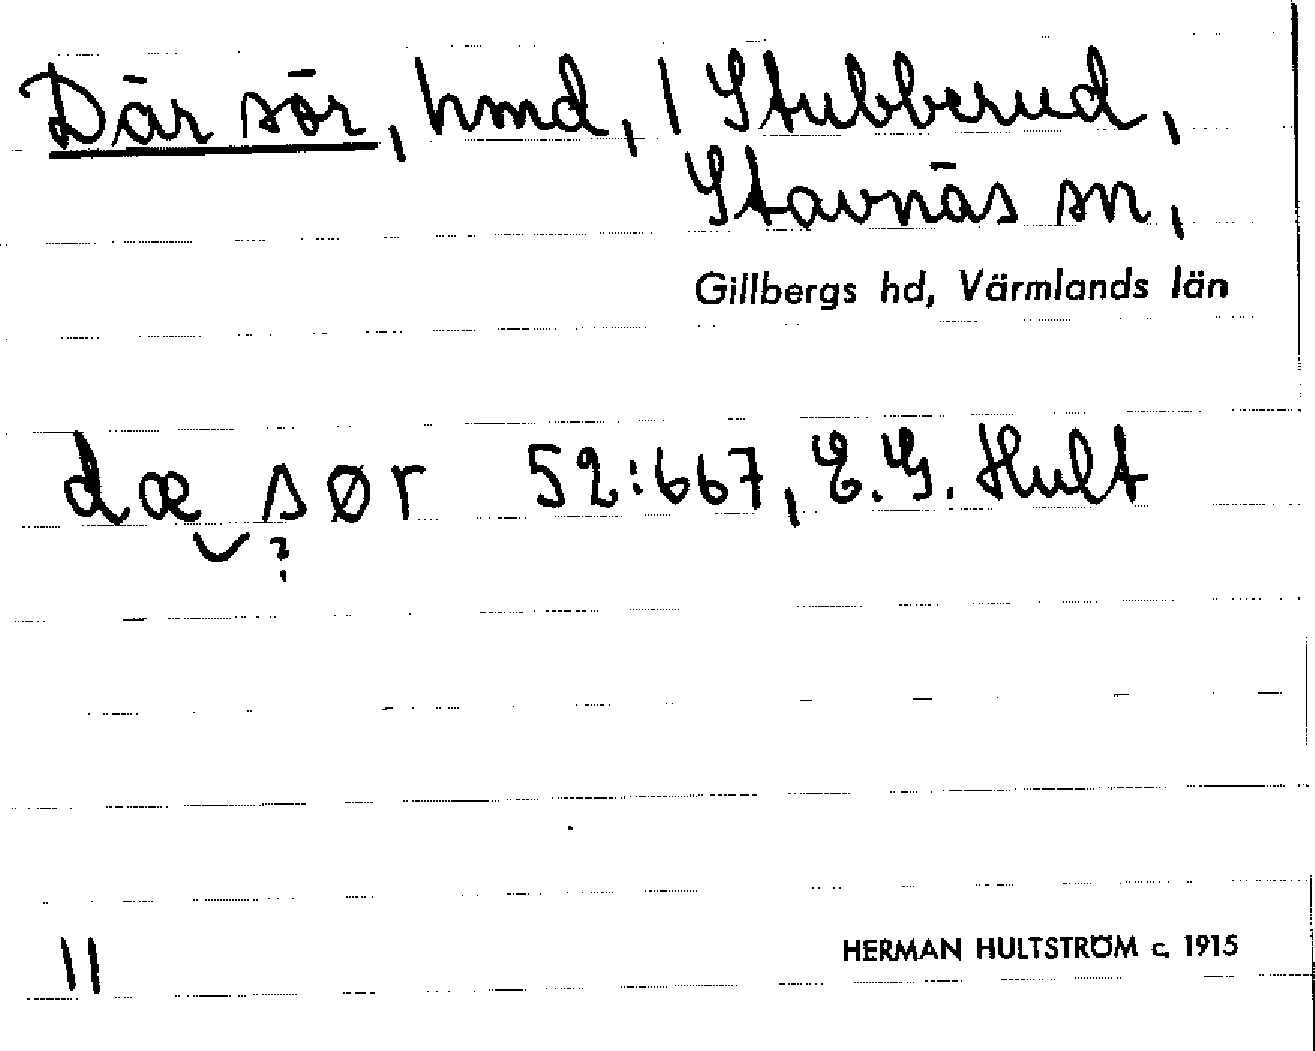 Där sör, hmd, 1 Stubberud,
Stavnäs sn,
Gillbergs hd, Värmlands län
dæ‿sør 52:667, E.G. Hult
?
11
HERMAN HULTSTRÖM c. 1915